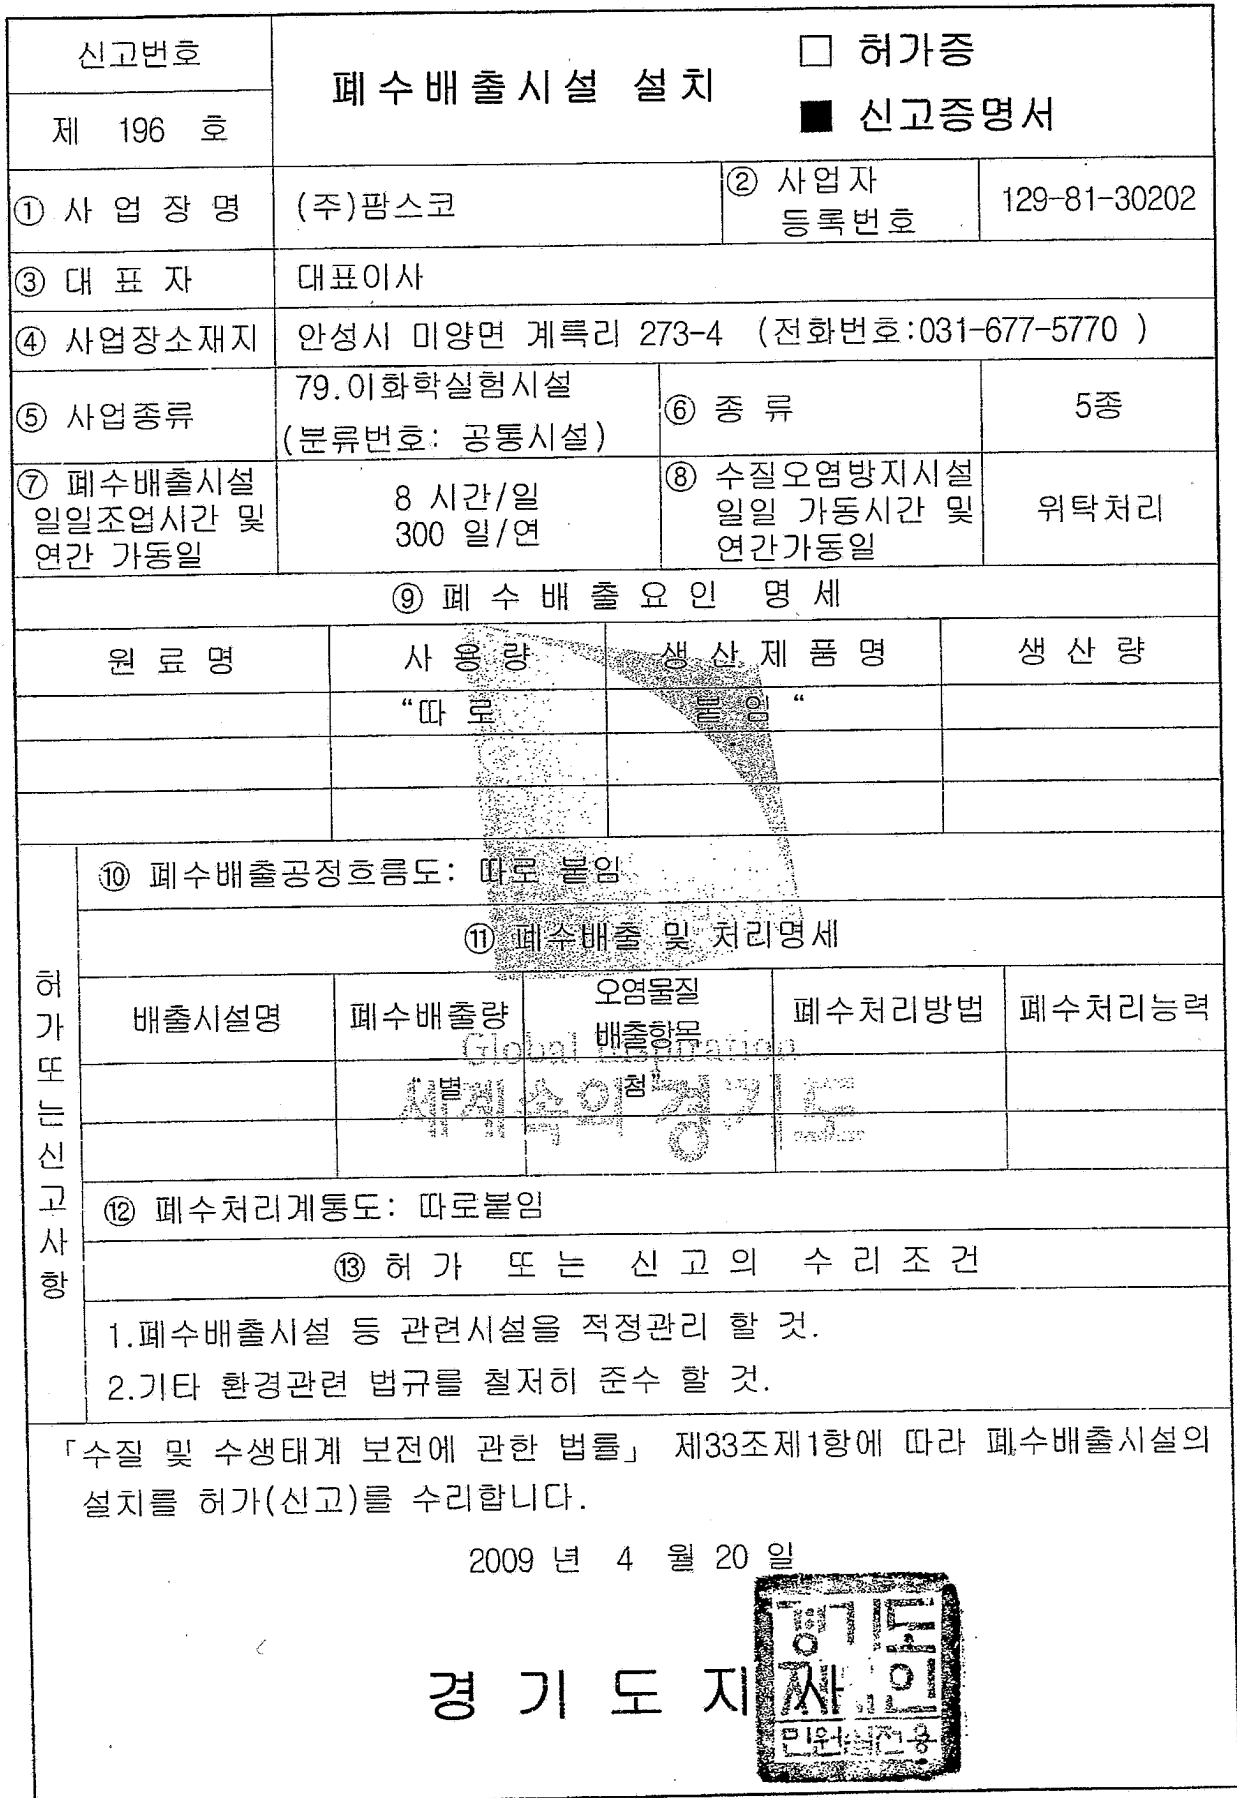 신고번호
제 196 호
폐수배출시설 설치
□ 허가증
■ 신고증명서
① 사 업 장 명
(주)팜스코
② 사업자
등록번호
129-81-30202
③ 대 표 자
대표이사
④ 사업장소재지
안성시 미양면 계륵리 273-4 (전화번호:031-677-5770 )
⑤ 사업종류
79.이화학실험시설
(분류번호: 공통시설)
⑥ 종 류
5종
⑦ 폐수배출시설
일일조업시간 및
연간 가동일
8 시간/일
300 일/연
⑧ 수질오염방지시설
일일 가동시간 및
연간가동일
위탁처리
⑨ 폐 수 배 출 요 인 명 세
원 료 명
사 용 량
생 산 제 품 명
생 산 량
“따 로
붙 임 “
허가또는신고사항
⑩ 폐수배출공정흐름도: 따로 붙임
⑪ 폐수배출 및 처리명세
배출시설명
폐수배출량
오염물질
배출항목
폐수처리방법
폐수처리능력
Global Inspiration
“별
첨”
세계속의 경기도
⑫ 폐수처리계통도: 따로붙임
⑬ 허 가 또 는 신 고 의 수 리 조 건
1.폐수배출시설 등 관련시설을 적정관리 할 것.
2.기타 환경관련 법규를 철저히 준수 할 것.
「수질 및 수생태계 보전에 관한 법률」 제33조제1항에 따라 폐수배출시설의
설치를 허가(신고)를 수리합니다.
2009 년 4 월 20 일
경 기 도 지 사
경기도
민원실전용